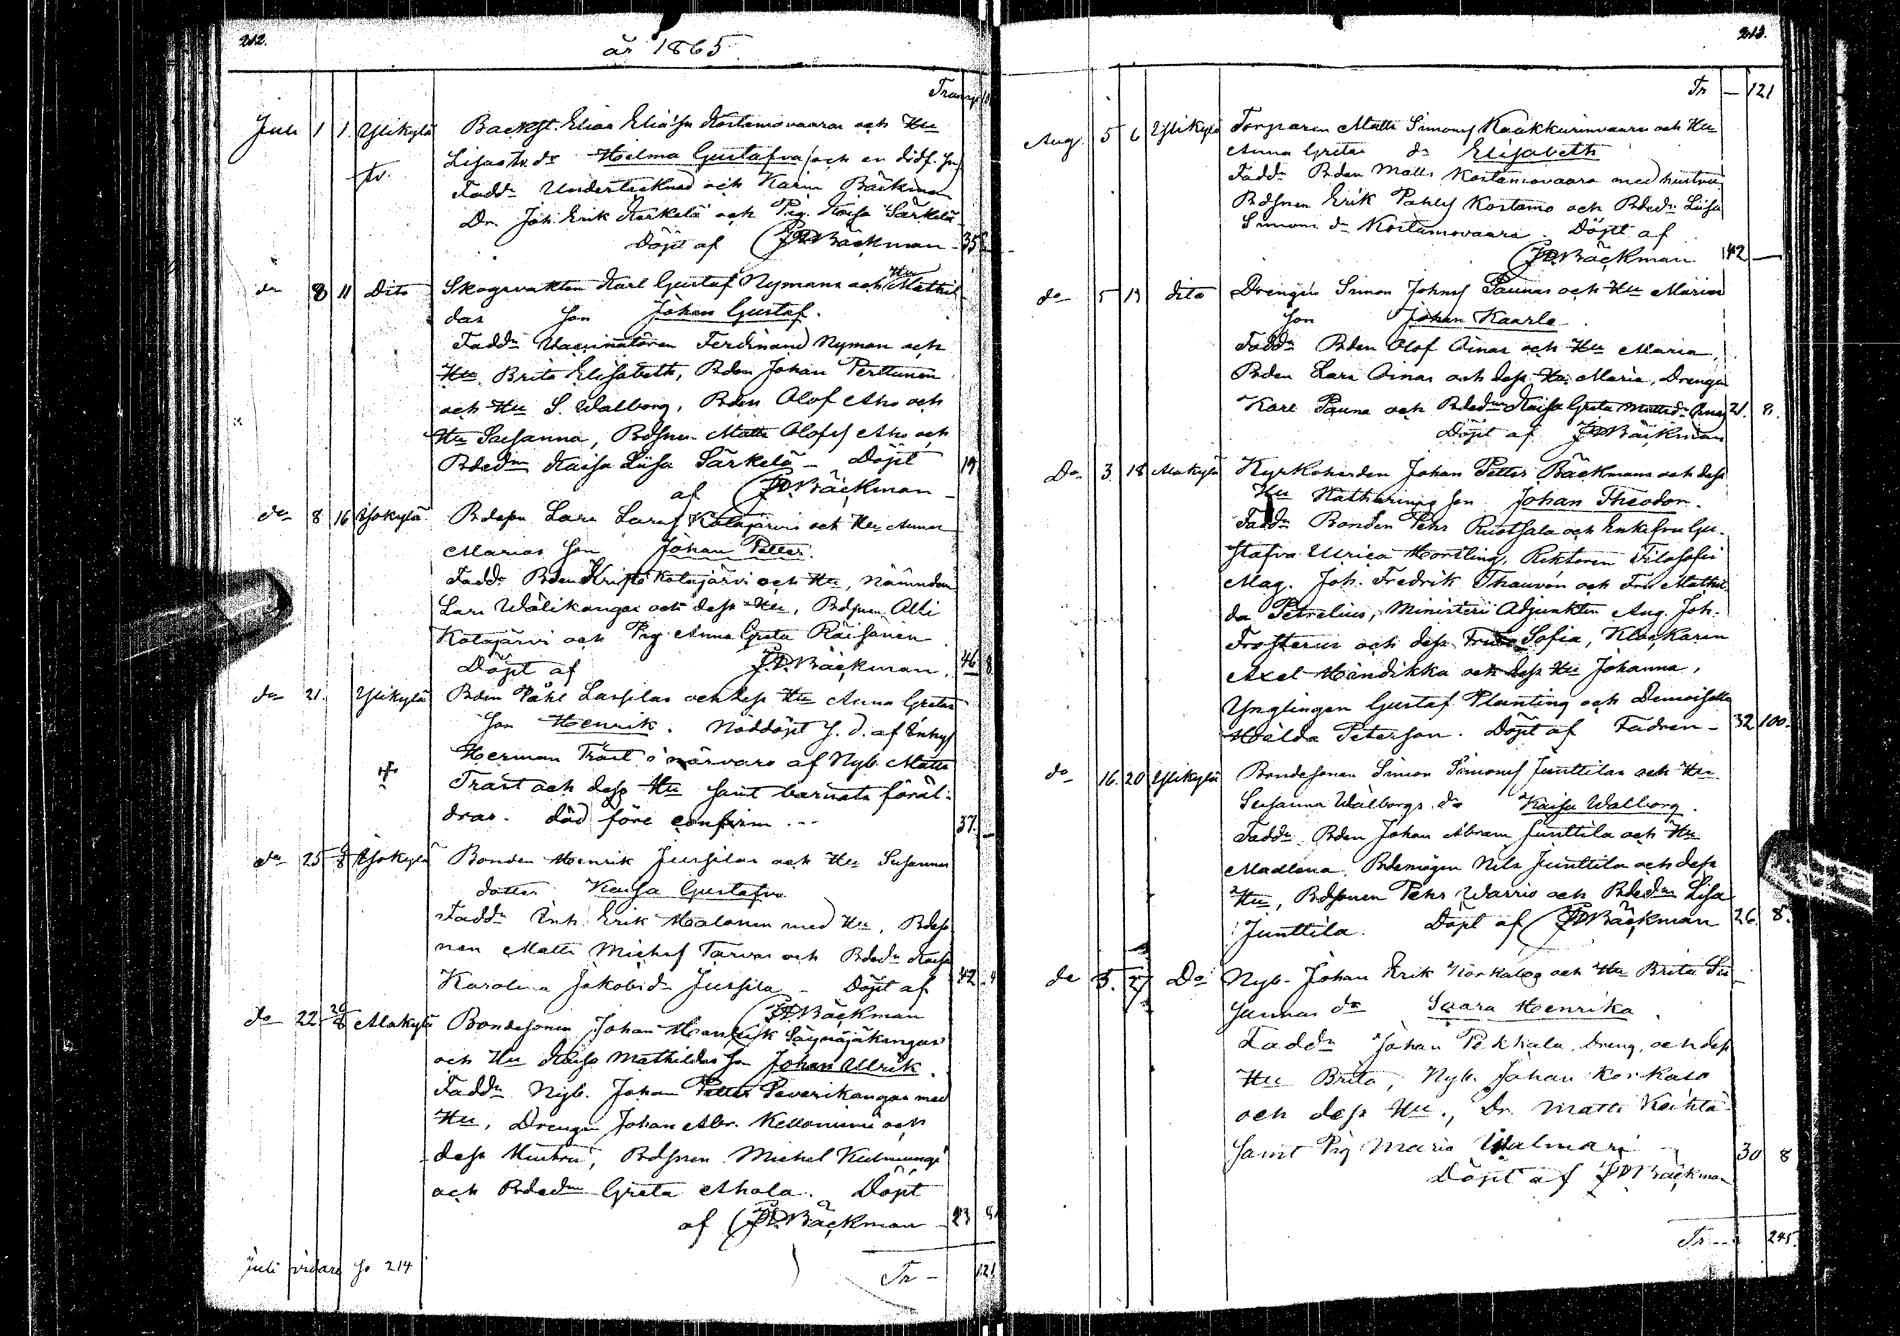 212.
år 1865
Transp.
Juli 1 1. Ylikylä Backst. Elias Eliass Kostamovaaran och Hu
tv. Lisas tv. dr Hilma Gustafva (och en dödf. son)
Fadd. Undertecknad och Karin Bäckman
Dr. Joh. Erik Korkelä och Pig. Kaisa Särkelä
Döpt af JD Bäckman 35
do 8 11 Dito Skogsvakten Karl Gustaf Nymans och Hu Mathil-
das son Johan Gustaf.
Fadd. Vaccinatören Ferdinand Nyman och
Hu Brita Elisabeth, Bden Johan Perttunen
och Hu S. Walborg, Bden Olof Aho och
Hu Susanna, Bdsn. Matts Olofss Aho och
Bdedn Kaisa Liisa Särkelä - Döpt 19
af JD. Bäckman -
do 8 16 Isokylä Bdesn Lars Larss Kotajärvi och Hu Anna
Marias son Johan Petter.
Fadd. Bden Kristo Kotajärvi och Hu, Nämndem
Lars Wälikangas och dess Hu, Bdsnen Olli
Kotajärvi och Pig. Anna Greta Räisänen
Döpt af JD. Bäckman. 46 8
do 21. Ylikylä Bden Påhl Lassilas och dess Hu Anna Gretas
son Henrik. Nöddöpt s. d. af Inhys
Herman Trast i närvaro af Nyb. Matts
Trast och dess Hu samt barnets föräl-
drar. död före confirm. -- 37. -
do 25 8 Isokylä Bonden Henrik Jussilas och Hu Susannas
dotter Kaisa Gustafva
Fadd. Inh. Erik Halonen med Hu, Bdes-
nen Matts Michelss Tarvas och Bdedr Kaisa
Karolina Jakobsdr Jussila - Döpt af 42
JD. Bäckman
do 22 8 Alakylä Bondesonen Johan Henrik Säynäjäkangas
och Hu Kaisa Mathildas son Johan Ulrik.
Fadd. Nyb. Johan Petter Severikangas med
Hu, Drengen Johan Abr. Kellonimi och
dess Hustru, Bdsnen Michel Kulmungi
och Bdedn Greta Ahola. Döpt
af JD. Bäckman 23
juli vidare se 214 Tr - 121
213.
Tr - 121
Aug. 5 6 Ylikylä Torparen Matts Simonss Kaakkurinvaara och Hu
Anna Gretas dr Elisabeth
Fadd. Bden Matts Kostamovaara med hustru
Bdsnen Erik Påhlss Kostamo och Bdedr Liisa
Simons dr Kostamovaara. Döpt af
JD. Bäckman 42 -
do 5 13 dito Drengen Simon Johnss Paunas och Hu Marias
son Johan Kaarle.
Fadd. Bden Olof Oinas och Hu Maria,
Bden Lars Oinas och dess Hu Maria, Drengen
Karl Pauna och Bdedn Kaisa Greta Mattsdr Oinas 21. 8.
Döpt af JD Bäckman
Do 3 18 Alakylä Kyrkoherden Johan Petter Bäckmans och dess
Hu Katharinas son Johan Theodor.
Fadd. Bonden Pehr Ruotsala och Enkefru Gu-
stafva Ulrica Montling, Rektoren Filosofie
Mag. Joh. Fredrik Thauvón och Fru Mathil-
da Petrelius, Ministerii Adjunkten Aug. Joh.
Frosterus och dess Fru Sofia, Klockaren
Axel Hindikka och dess Hu Johanna,
Ynglingen Gustaf Planting och Demoiselle
Hilda Peterson. Döpt af Fadren - 32 100.
do 16. 20 Ylikylä Bondesonen Simon Simonss Junttilas och Hu
Susanna Walborgs dr Kaisa Walborg.
Fadd. Bden Johan Abram Junttila och Hu
Madlena, Bdemågen Nils Junttila och dess
Hu, Bdsonen Pehr Warrio och Bdedn Lisa
Junttila. Döpt af JD Bäckman 26. 8.
do 5. 27 Do Nyb. Johan Erik Korkalo och Hu Brita Su-
sannas dr Saara Henrika.
Fadd. Johan Pekkala, Dreng, och dess
Hu Brita, Nyb. Johan Korkalo
och dess Hu, Dr. Matts Koihla
samt Pig Maria Walmari 30 8
Döpt af JD Bäckman
Tr -- 245.